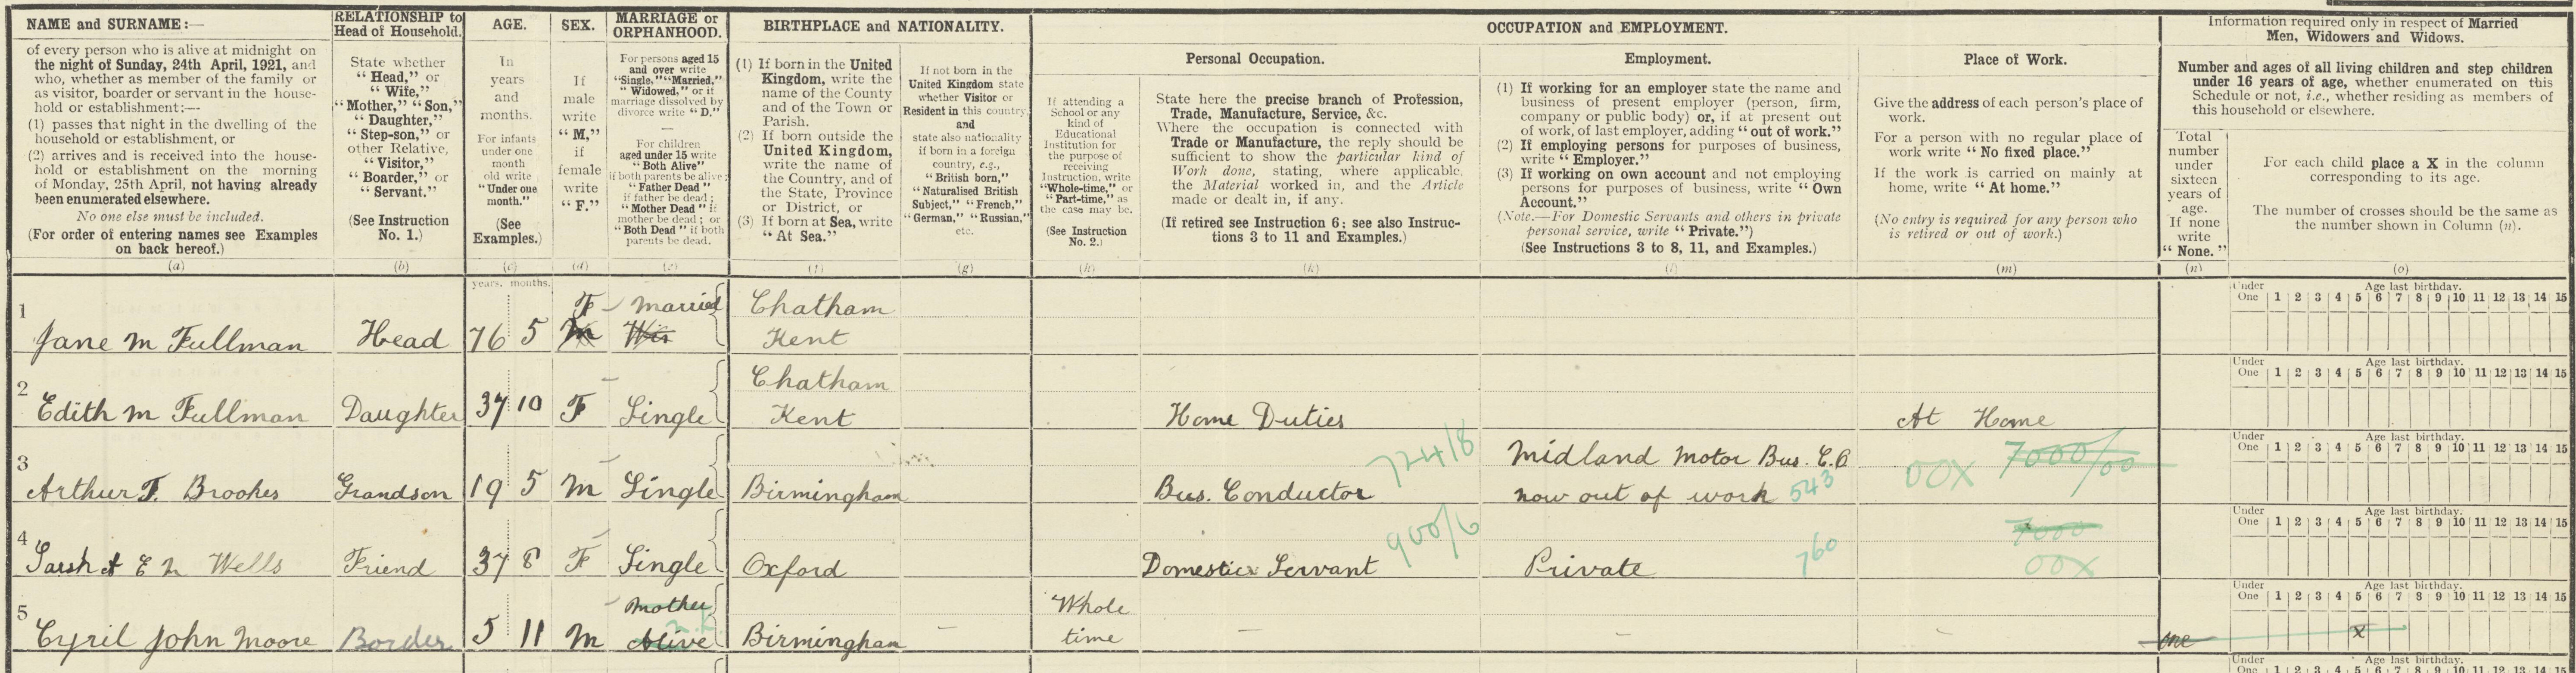 NAME and SURNAME:—
of every person who is alive at midnight on
the night of Sunday, 24th April, 1921, and
who, whether as member of the family or
as visitor, boarder or servant in the house-
hold or establishment:—
(1) passes that night in the dwelling of the
household or establishment, or
(2) arrives and is received into the house-
hold or establishment on the morning
of Monday, 25th April, not having already
been enumerated elsewhere.
No one else must be included.
(For order of entering names see Examples
on back hereof.)
(a)
RELATIONSHIP to
Head of Household.
State whether
"Head," or
"Wife,"
"Mother," "Son,"
"Daughter,"
"Step-son," or
other Relative,
"Visitor,"
"Boarder," or
"Servant."
(See Instruction
No. 1.)
(b)
AGE.
In
years
and
months.
For infants
under one
month
old write
"Under one
month."
(See
Examples.)
(c)
SEX.
If
male
write
"M,"
if
female
write
"F."
(d)
MARRIAGE or
ORPHANHOOD.
For persons aged 15
and over write
"Single," "Married,"
"Widowed," or if
marriage dissolved by
divorce write "D."
—
For children
aged under 15 write
"Both Alive"
if both parents be alive;
"Father Dead"
if father be dead;
"Mother Dead" if
mother be dead; or
"Both Dead" if both
parents be dead.
(e)
BIRTHPLACE and NATIONALITY.
(1) If born in the United
Kingdom, write the
name of the County
and of the Town or
Parish.
(2) If born outside the
United Kingdom,
write the name of
the Country, and of
the State, Province
or District, or
(3) If born at Sea, write
"At Sea."
(f)
If not born in the
United Kingdom state
whether Visitor or
Resident in this country,
and
state also nationality
if born in a foreign
country, e.g.,
"British born,"
"Naturalised British
Subject," "French,"
"German," "Russian,"
etc.
(g)
OCCUPATION and EMPLOYMENT.
If attending a
School or any
kind of
Educational
Institution for
the purpose of
receiving
Instruction, write
"Whole-time," or
"Part-time," as
the case may be.
(See Instruction
No. 2.)
(h)
Personal Occupation.
State here the precise branch of Profession,
Trade, Manufacture, Service, &c.
Where the occupation is connected with
Trade or Manufacture, the reply should be
sufficient to show the particular kind of
Work done, stating, where applicable,
the Material worked in, and the Article
made or dealt in, if any.
(If retired see Instruction 6; see also Instruc-
tions 3 to 11 and Examples.)
(k)
Employment.
(1) If working for an employer state the name and
business of present employer (person, firm,
company or public body) or, if at present out
of work, of last employer, adding "out of work."
(2) If employing persons for purposes of business,
write "Employer."
(3) If working on own account and not employing
persons for purposes of business, write "Own
Account."
(Note.—For Domestic Servants and others in private
personal service, write "Private.")
(See Instructions 3 to 8, 11, and Examples.)
(l)
Place of Work.
Give the address of each person's place of
work.
For a person with no regular place of
work write "No fixed place."
If the work is carried on mainly at
home, write "At home."
(No entry is required for any person who
is retired or out of work.)
(m)
Information required only in respect of Married
Men, Widowers and Widows.
Number and ages of all living children and step children
under 16 years of age, whether enumerated on this
Schedule or not, i.e., whether residing as members of
this household or elsewhere.
Total
number
under
sixteen
years of
age.
If none
write
"None."
(n)
For each child place a X in the column
corresponding to its age.
The number of crosses should be the same as
the number shown in Column (n).
(o)
years. months.
Under Age last birthday.
One 1 2 3 4 5 6 7 8 9 10 11 12 13 14 15
F married Chatham
1 Jane M Fullman Head 76 5 M Wid Kent
Under Age last birthday.
One 1 2 3 4 5 6 7 8 9 10 11 12 13 14 15
Chatham
2 Edith M Fullman Daughter 37 10 F Single Kent Home Duties At Home
Under Age last birthday.
One 1 2 3 4 5 6 7 8 9 10 11 12 13 14 15
724/8 Midland Motor Bus. C.O 00X 7000/00
3 Arthur F. Brookes Grandson 19 5 M Single Birmingham Bus. Conductor now out of work 543
Under Age last birthday.
One 1 2 3 4 5 6 7 8 9 10 11 12 13 14 15
900/6 7000
4 E Wells Friend 37 8 F Single Oxford Domestic Servant Private 760 00X
Under Age last birthday.
One 1 2 3 4 5 6 7 8 9 10 11 12 13 14 15
Mother Whole
5 Cyril John Moore Border 5 11 M Alive Birmingham – time – – – one x
Under Age last birthday.
One 1 2 3 4 5 6 7 8 9 10 11 12 13 14 15